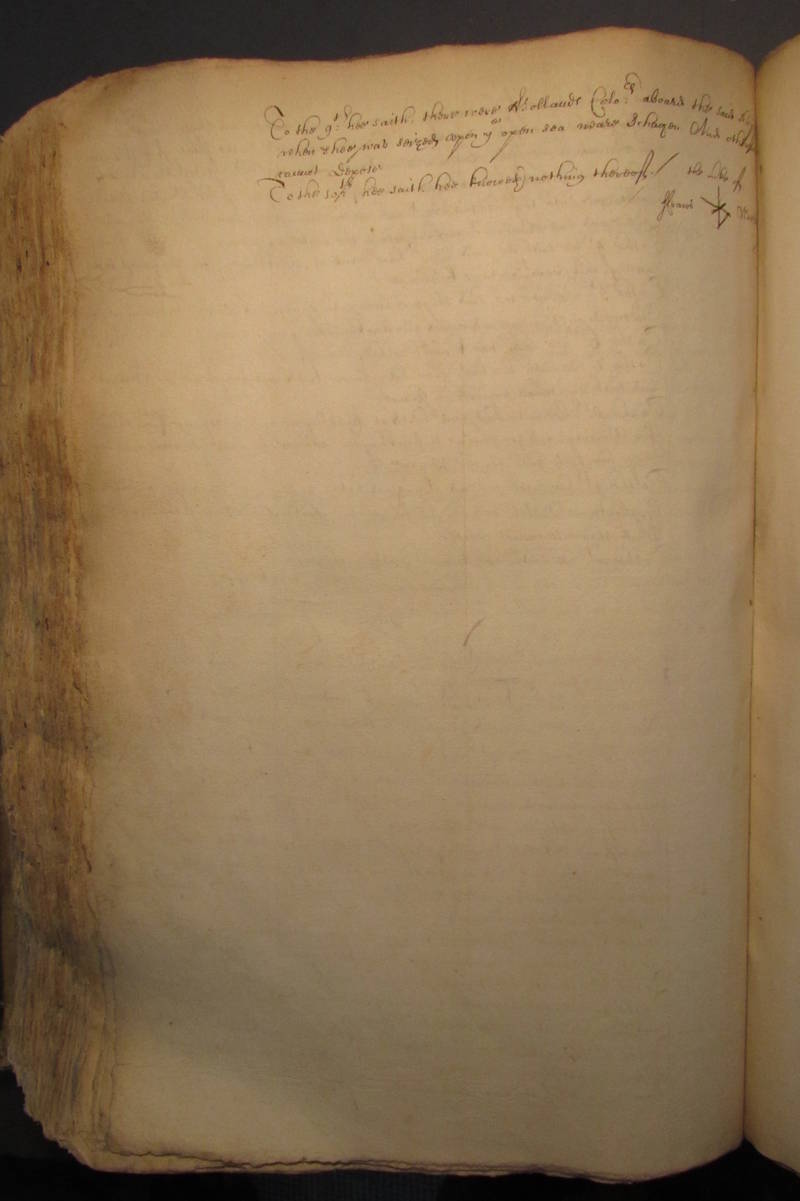 To the 9th. hee saith. there were Hollands Colors. aboard the said Ship
when shee was seized upon ye open sea neare Schagen And otherwise
cannot depose
To the 10th hee saith hee knoweth nothing thereof./
the
of